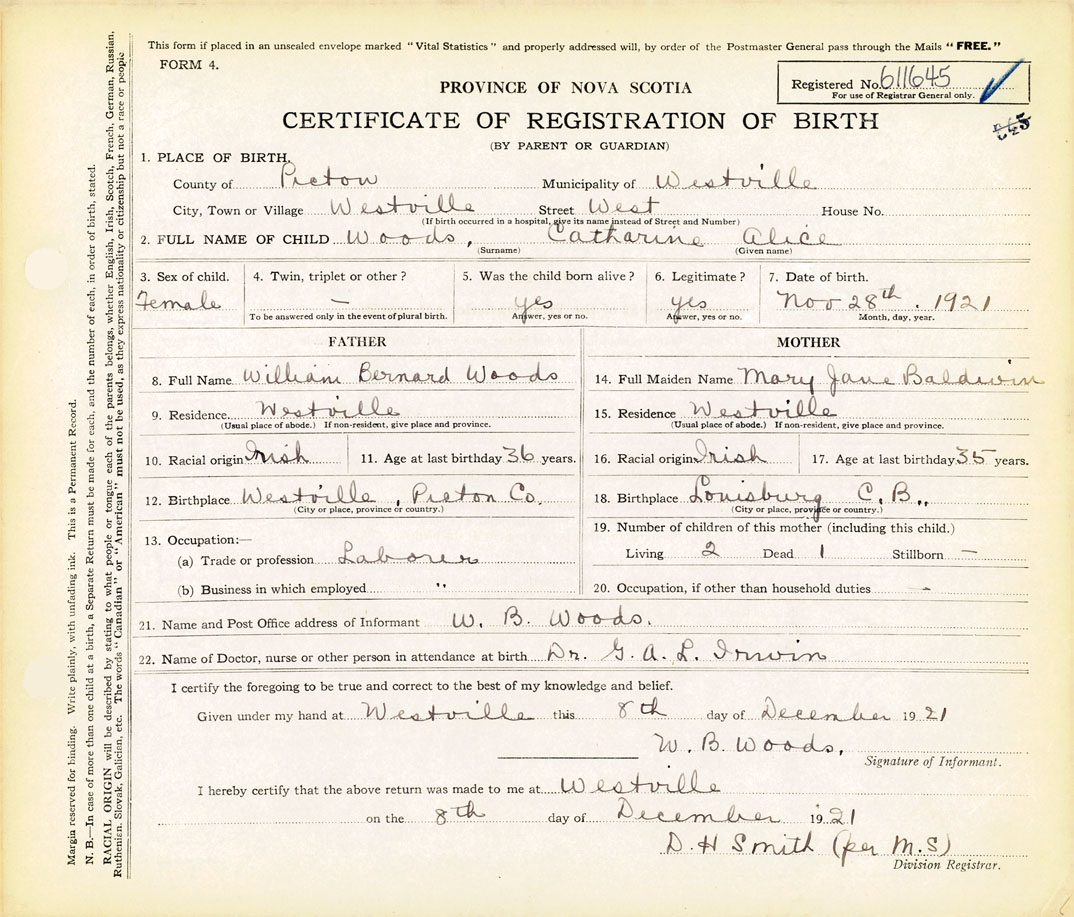 This form if placed in an unsealed envelope marked "Vital Statistics" and properly addressed will, by order of the Postmaster General pass through the Mails "FREE."
FORM 4.
Registered No. 611645
For use of Registrar General only.
PROVINCE OF NOVA SCOTIA
CERTIFICATE OF REGISTRATION OF BIRTH
(BY PARENT OR GUARDIAN)
1. PLACE OF BIRTH.
County of Pictou Municipality of Westville
City, Town or Village Westville Street West House No.
(If birth occurred in a hospital, give its name instead of Street and Number)
2. FULL NAME OF CHILD Woods, Catharine Alice
(Surname) (Given name)
3. Sex of child. 4. Twin, triplet or other? 5. Was the child born alive? 6. Legitimate? 7. Date of birth.
Female — yes yes Nov 28th. 1921
To be answered only in the event of plural birth. Answer, yes or no. Answer, yes or no. Month, day, year.
FATHER MOTHER
8. Full Name William Bernard Woods 14. Full Maiden Name Mary Jane Baldwin
9. Residence Westville 15. Residence Westville
(Usual place of abode.) If non-resident, give place and province. (Usual place of abode.) If non-resident, give place and province.
10. Racial origin Irish 11. Age at last birthday 36 years. 16. Racial origin Irish 17. Age at last birthday 35 years.
12. Birthplace Westville, Pictou Co. 18. Birthplace Louisburg C. B.,
(City or place, province or country.) (City or place, province or country.)
13. Occupation:— 19. Number of children of this mother (including this child.)
(a) Trade or profession Laborer Living 2 Dead 1 Stillborn —
(b) Business in which employed " 20. Occupation, if other than household duties —
21. Name and Post Office address of Informant W. B. Woods.
22. Name of Doctor, nurse or other person in attendance at birth Dr. G. A. L. Irwin
I certify the foregoing to be true and correct to the best of my knowledge and belief.
Given under my hand at Westville this 8th day of December 1921
W. B. Woods.
Signature of Informant.
I hereby certify that the above return was made to me at Westville
on the 8th day of December 1921
D. H Smith (per M.S)
Division Registrar.
Margin reserved for binding. Write plainly, with unfading ink. This is a Permanent Record.
N. B.—In case of more than one child at a birth, a Separate Return must be made for each, and the number of each, in order of birth, stated.
RACIAL ORIGIN will be described by stating to what people or tongue each of the parents belongs, whether English, Irish, Scotch, French, German, Russian,
Ruthenian, Slovak, Galician, etc. The words "Canadian" or "American" must not be used, as they express nationality or citizenship but not a race or people